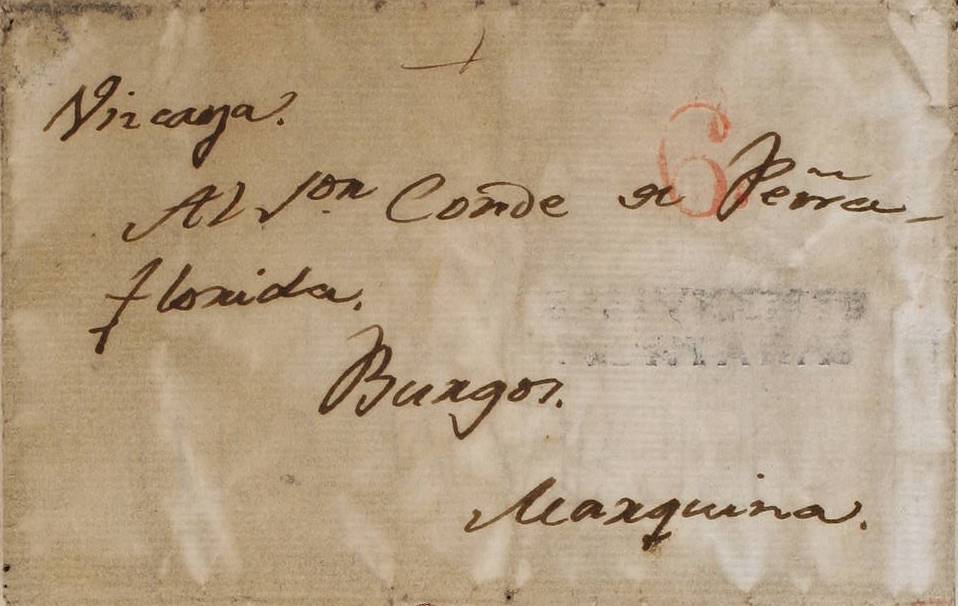 Vizcaya.
6
Al Sor Conde de Peña-
florida.
Burgos.
Marquina.